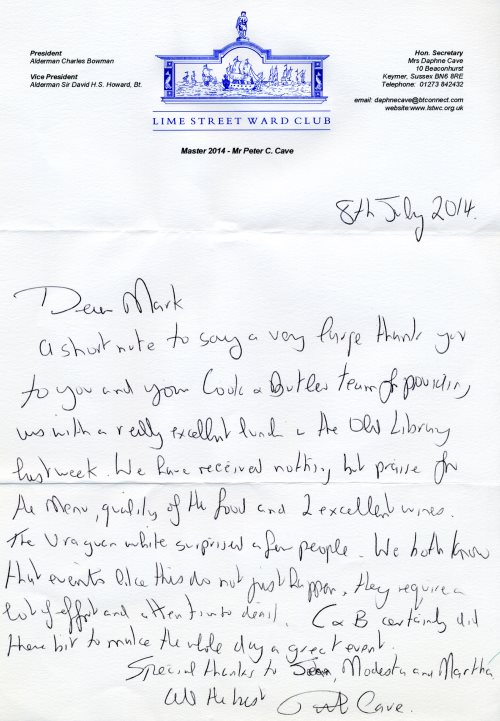 President
Alderman Charles Bowman
Vice President
Alderman Sir David H.S. Howard, Bt.
LIME STREET WARD CLUB
Master 2014 - Mr Peter C. Cave
Hon. Secretary
Mrs Daphne Cave
10 Beaconhurst
Keymer, Sussex BN6 8RE
Telephone: 01273 842432
email: daphnecave@btconnect.com
website:www.lstwc.org.uk
8th July 2014.
Dear Mark
A short note to say a very large thank you
to you and your Cook & Butler team for providing
us with a really excellent lunch in the Old Library
last week. We have received nothing but praise for
the menu, quality of the food and 2 excellent wines.
The Uraguan white surprised a few people. We both know
that events like this do not just happen, they require a
lot of effort and attention to detail. C & B certainly did
there bit to make the whole day a great event.
Special thanks to Modesta and Martha
All the best
Cave.